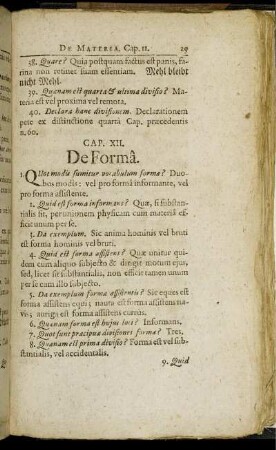 De Materia, Cap. 11. 29
38. Quare? Quia postquam factus est panis, fa-
rina non retinet suam essentiam. Mehl bleibt
nicht Mehl.
39. Quanam est quarta & ultima divisio? Ma-
teria est vel proxima vel remota.
40. Declara hanc divisionem. Declarationem
pete ex distinctione quarta Cap. præcedentis
n. 60.
CAP. XII.
De Formâ.
1. Quot modis sumitur vocabulum forma? Duo-
bus modis: vel pro formâ informante, vel
pro formâ assistente.
2. Quid est forma informans? Quæ, si substan-
tialis sit, per unionem physicam cum materiâ eff-
icit unum per se.
3. Da exemplum. Sic anima hominis vel bruti
est forma hominis vel bruti.
4. Quid est forma assistens? Quæ unitur qui-
dem cum aliquo subjecto & dirigit motum ejus,
sed, licet sit substantialis, non efficit tamen unum
per se cum illo subjecto.
5. Da exemplum forma assistentis? Sic eques est
forma assistens equi; nauta est forma assistens na-
vis; auriga est forma assistens currus.
6. Quanam forma est hujus loci? Informans.
7. Quot sunt præcipuæ divisiones formæ? Tres.
8. Quanam est prima divisio? Forma est vel sub-
stantialis, vel accidentalis.
9. Quid